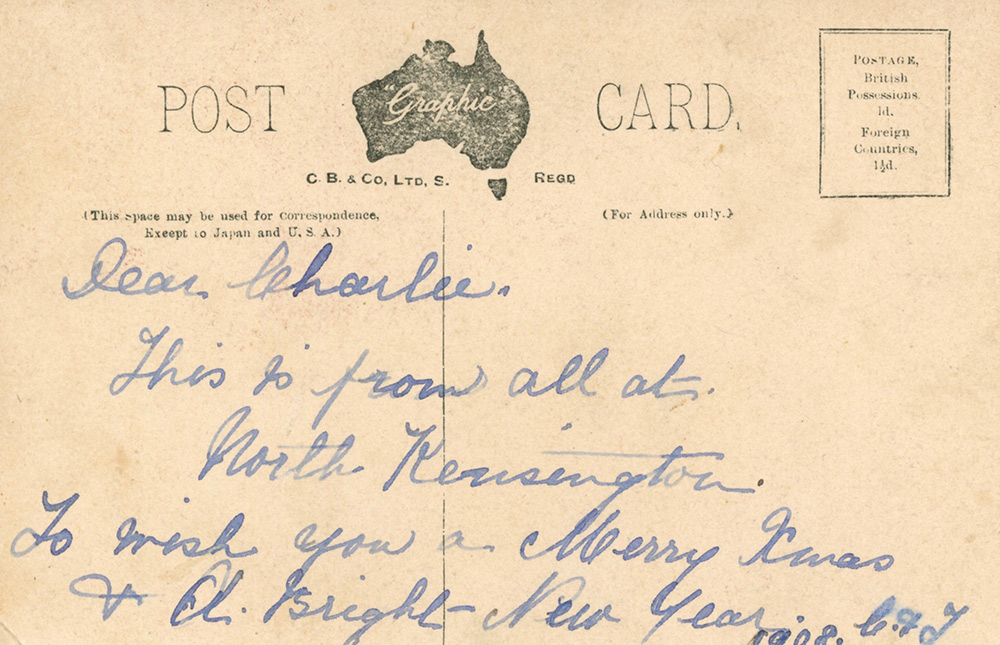 POST "Graphic" CARD.
C. B. & Co, LTD, S. REGD
POSTAGE,
British
Possessions.
1d.
Foreign
Countries,
1½d.
(This space may be used for correspondence,
Except to Japan and U. S. A.)
(For Address only.)
Dear Charlie.
This is from all at.
North Kensington.
To wish you a Merry Xmas
& A. Bright New Year.
1908.